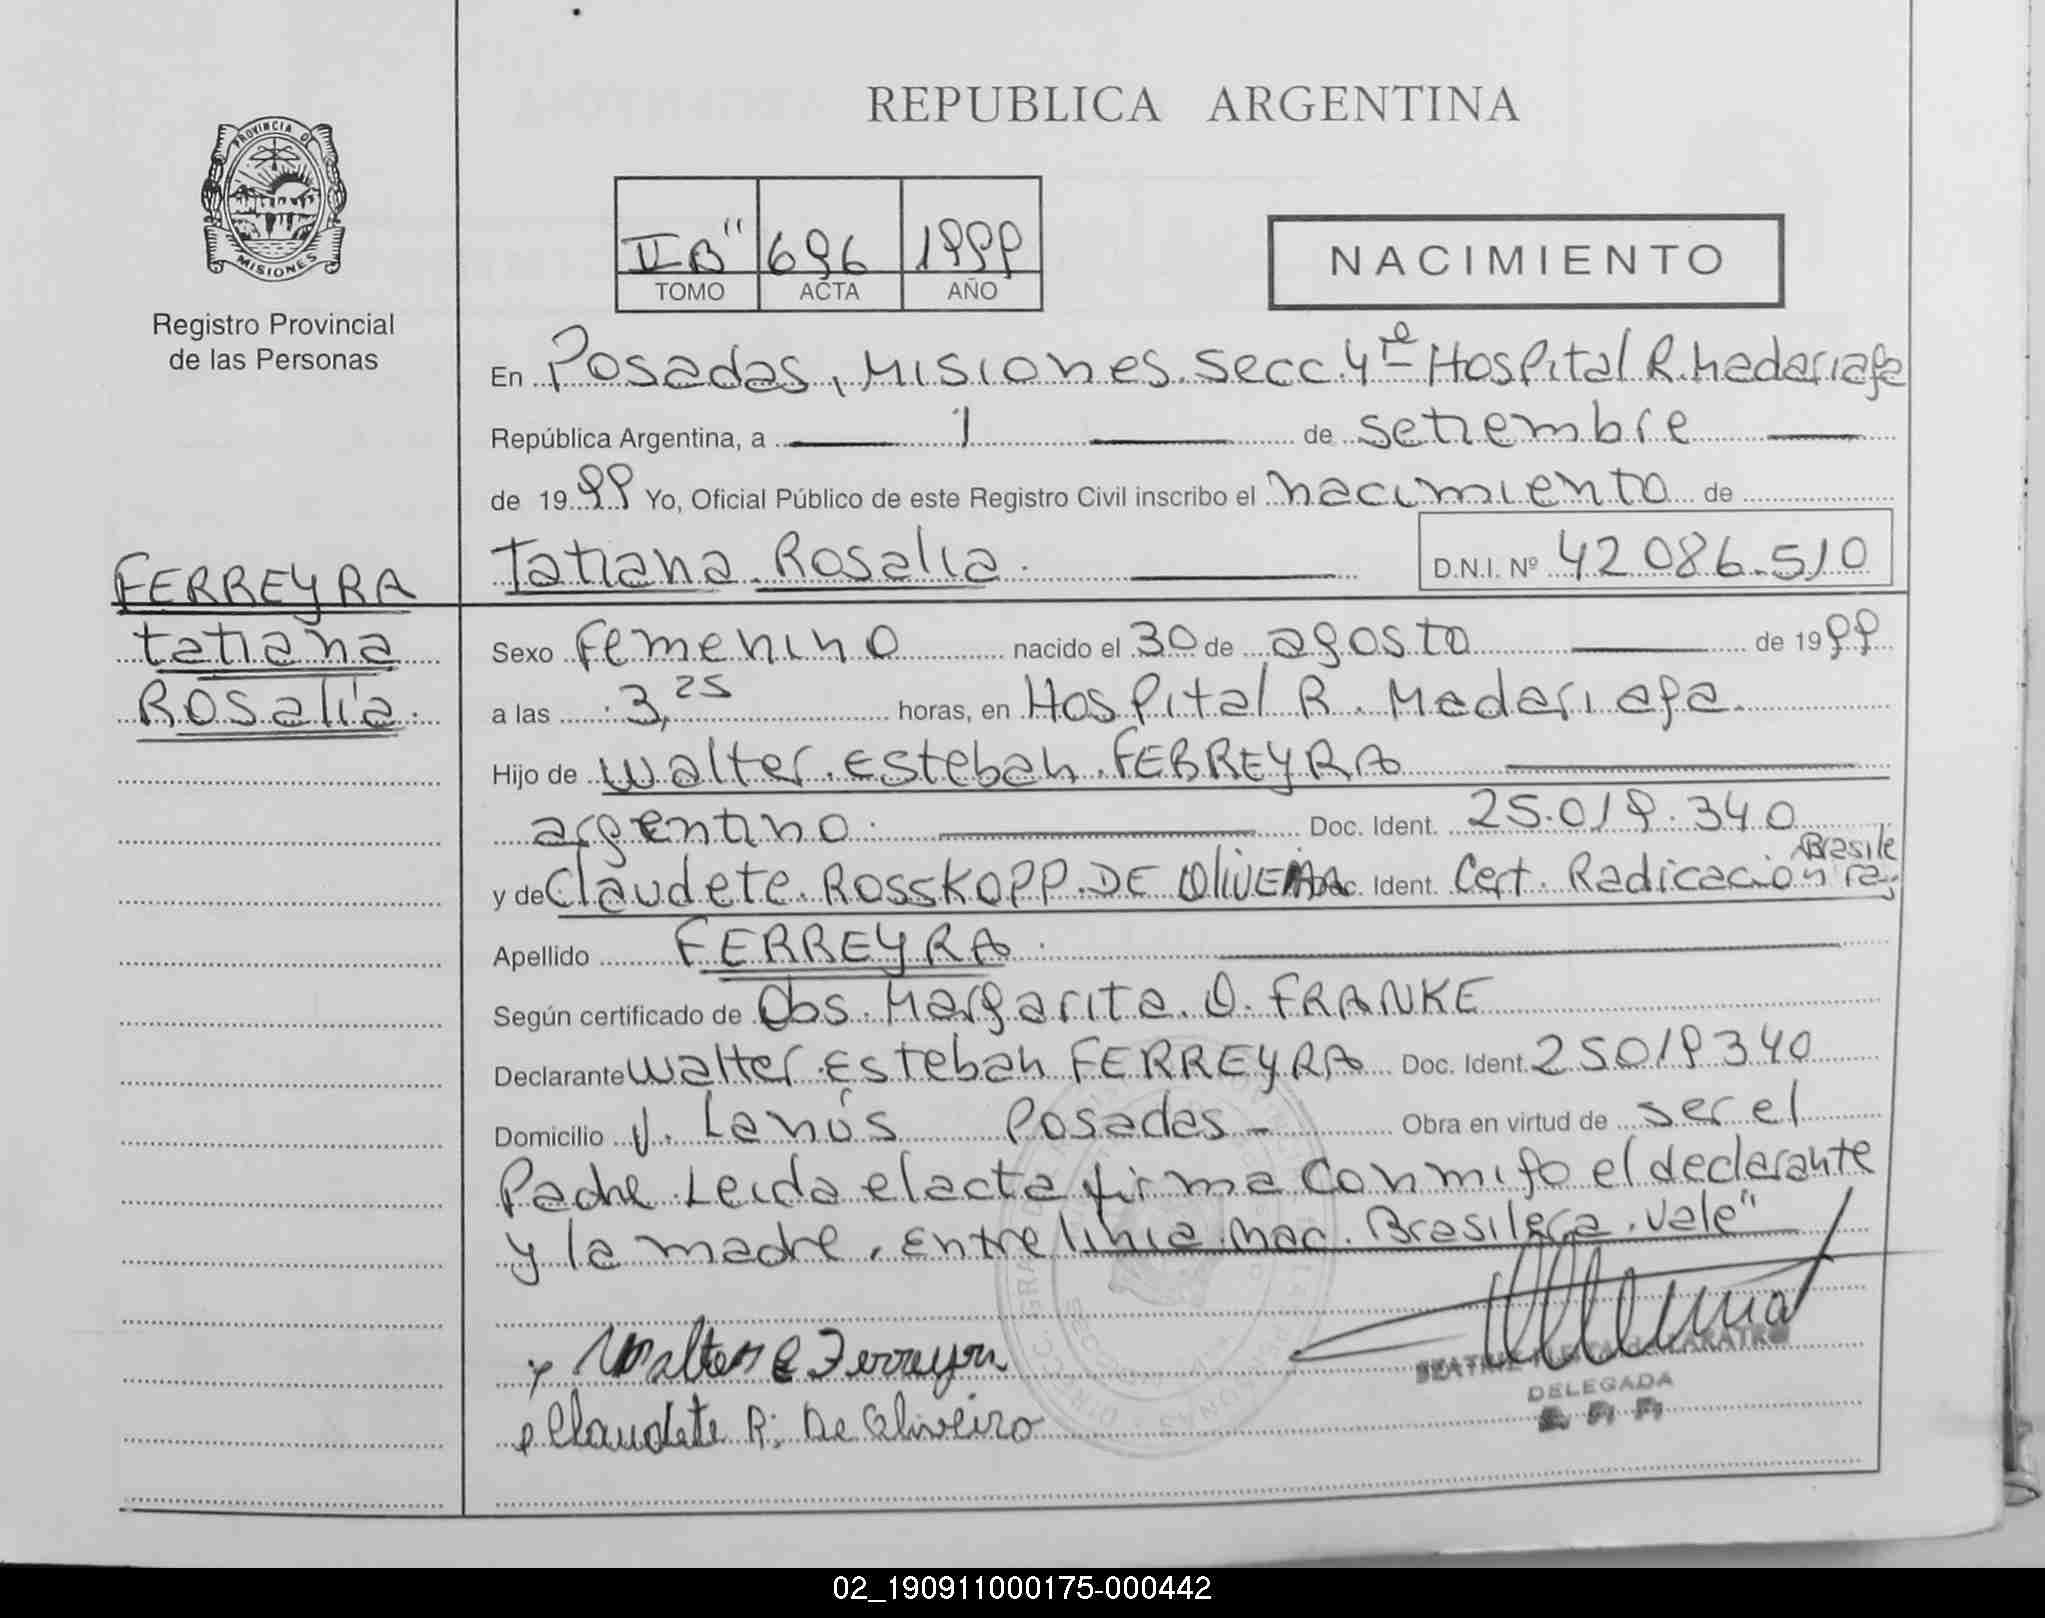 REPUBLICA ARGENTINA
PROVINCIA DE
MISIONES
Registro Provincial
de las Personas
II B" 696 1999
TOMO ACTA AÑO
NACIMIENTO
En Posadas, Misiones. Secc. 4ta Hospital R. Madariaga
República Argentina, a 1 de setiembre
de 1999 Yo, Oficial Público de este Registro Civil inscribo el nacimiento de
Tatiana Rosalia. D.N.I. Nº 42086.510
FERREYRA
tatiana
Rosalía.
Sexo Femenino nacido el 30 de agosto de 1999
a las 3,25 horas, en Hospital R. Madariaga.
Hijo de Walter Esteban FERREYRA
argentino. Doc. Ident. 25.019.340
y de Claudete ROSSKOPP DE OliVEIRA Doc. Ident. Cert. Radicación Brasilera,
Apellido FERREYRA.
Según certificado de Obs. Margarita O. FRANKE
Declarante Walter Esteban FERREYRA Doc. Ident. 25019340
Domicilio V. Lanús Posadas - Obra en virtud de ser el
Padre Leida el acta firma conmigo el declarante
y la madre, Entre linia nac. Brasilera. Vale"
Walter E Ferreyra
Claudete R. De Oliveira
BEATRIZ
DELEGADA
02_190911000175-000442